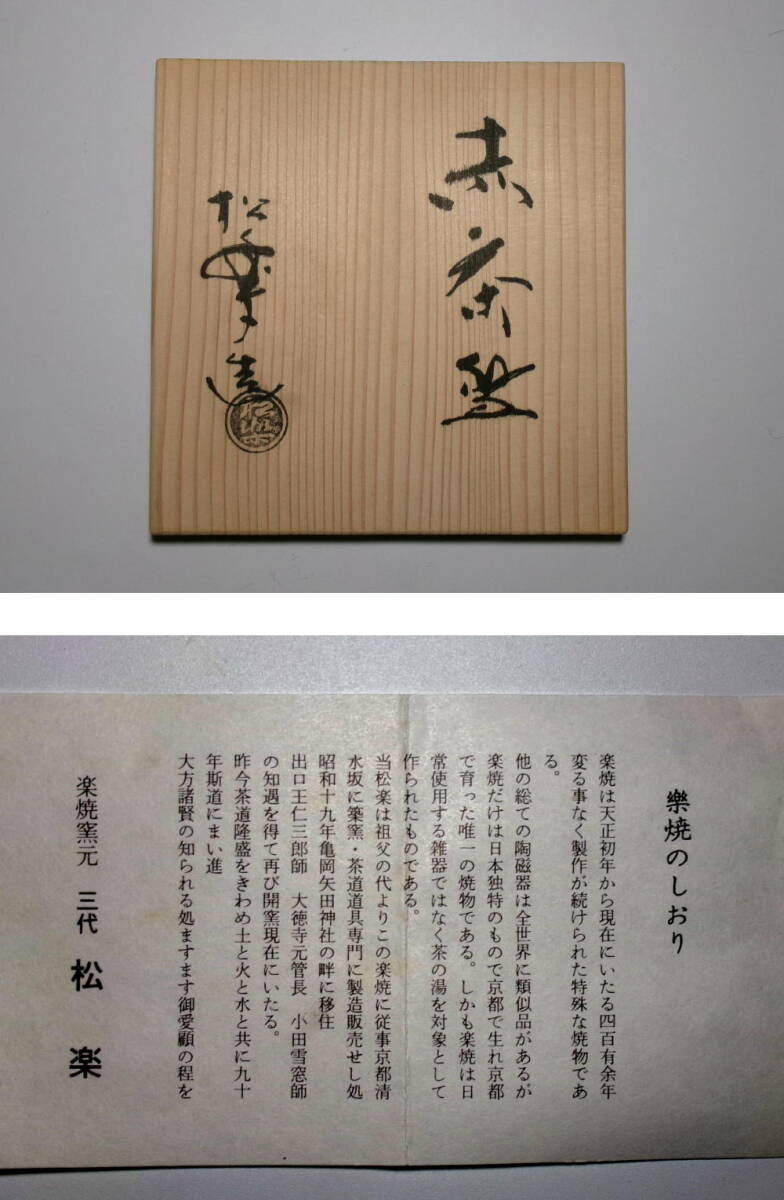 赤茶盌
松楽造
樂焼のしおり
楽焼は天正初年から現在にいたる四百有余年
変る事なく製作が続けられた特殊な焼物であ
る。
他の総ての陶磁器は全世界に類似品があるが
楽焼だけは日本独特のもので京都で生れ京都
で育った唯一の焼物である。しかも楽焼は日
常使用する雑器ではなく茶の湯を対象として
作られたものである。
当松楽は祖父の代よりこの楽焼に従事京都清
水坂に築窯・茶道道具専門に製造販売せし処
昭和十九年亀岡矢田神社の畔に移住
出口王仁三郎師　大徳寺元管長　小田雪窓師
の知遇を得て再び開窯現在にいたる。
昨今茶道隆盛をきわめ土と火と水と共に九十
年斯道にまい進
大方諸賢の知られる処ますます御愛顧の程を
楽焼窯元　三代　松楽